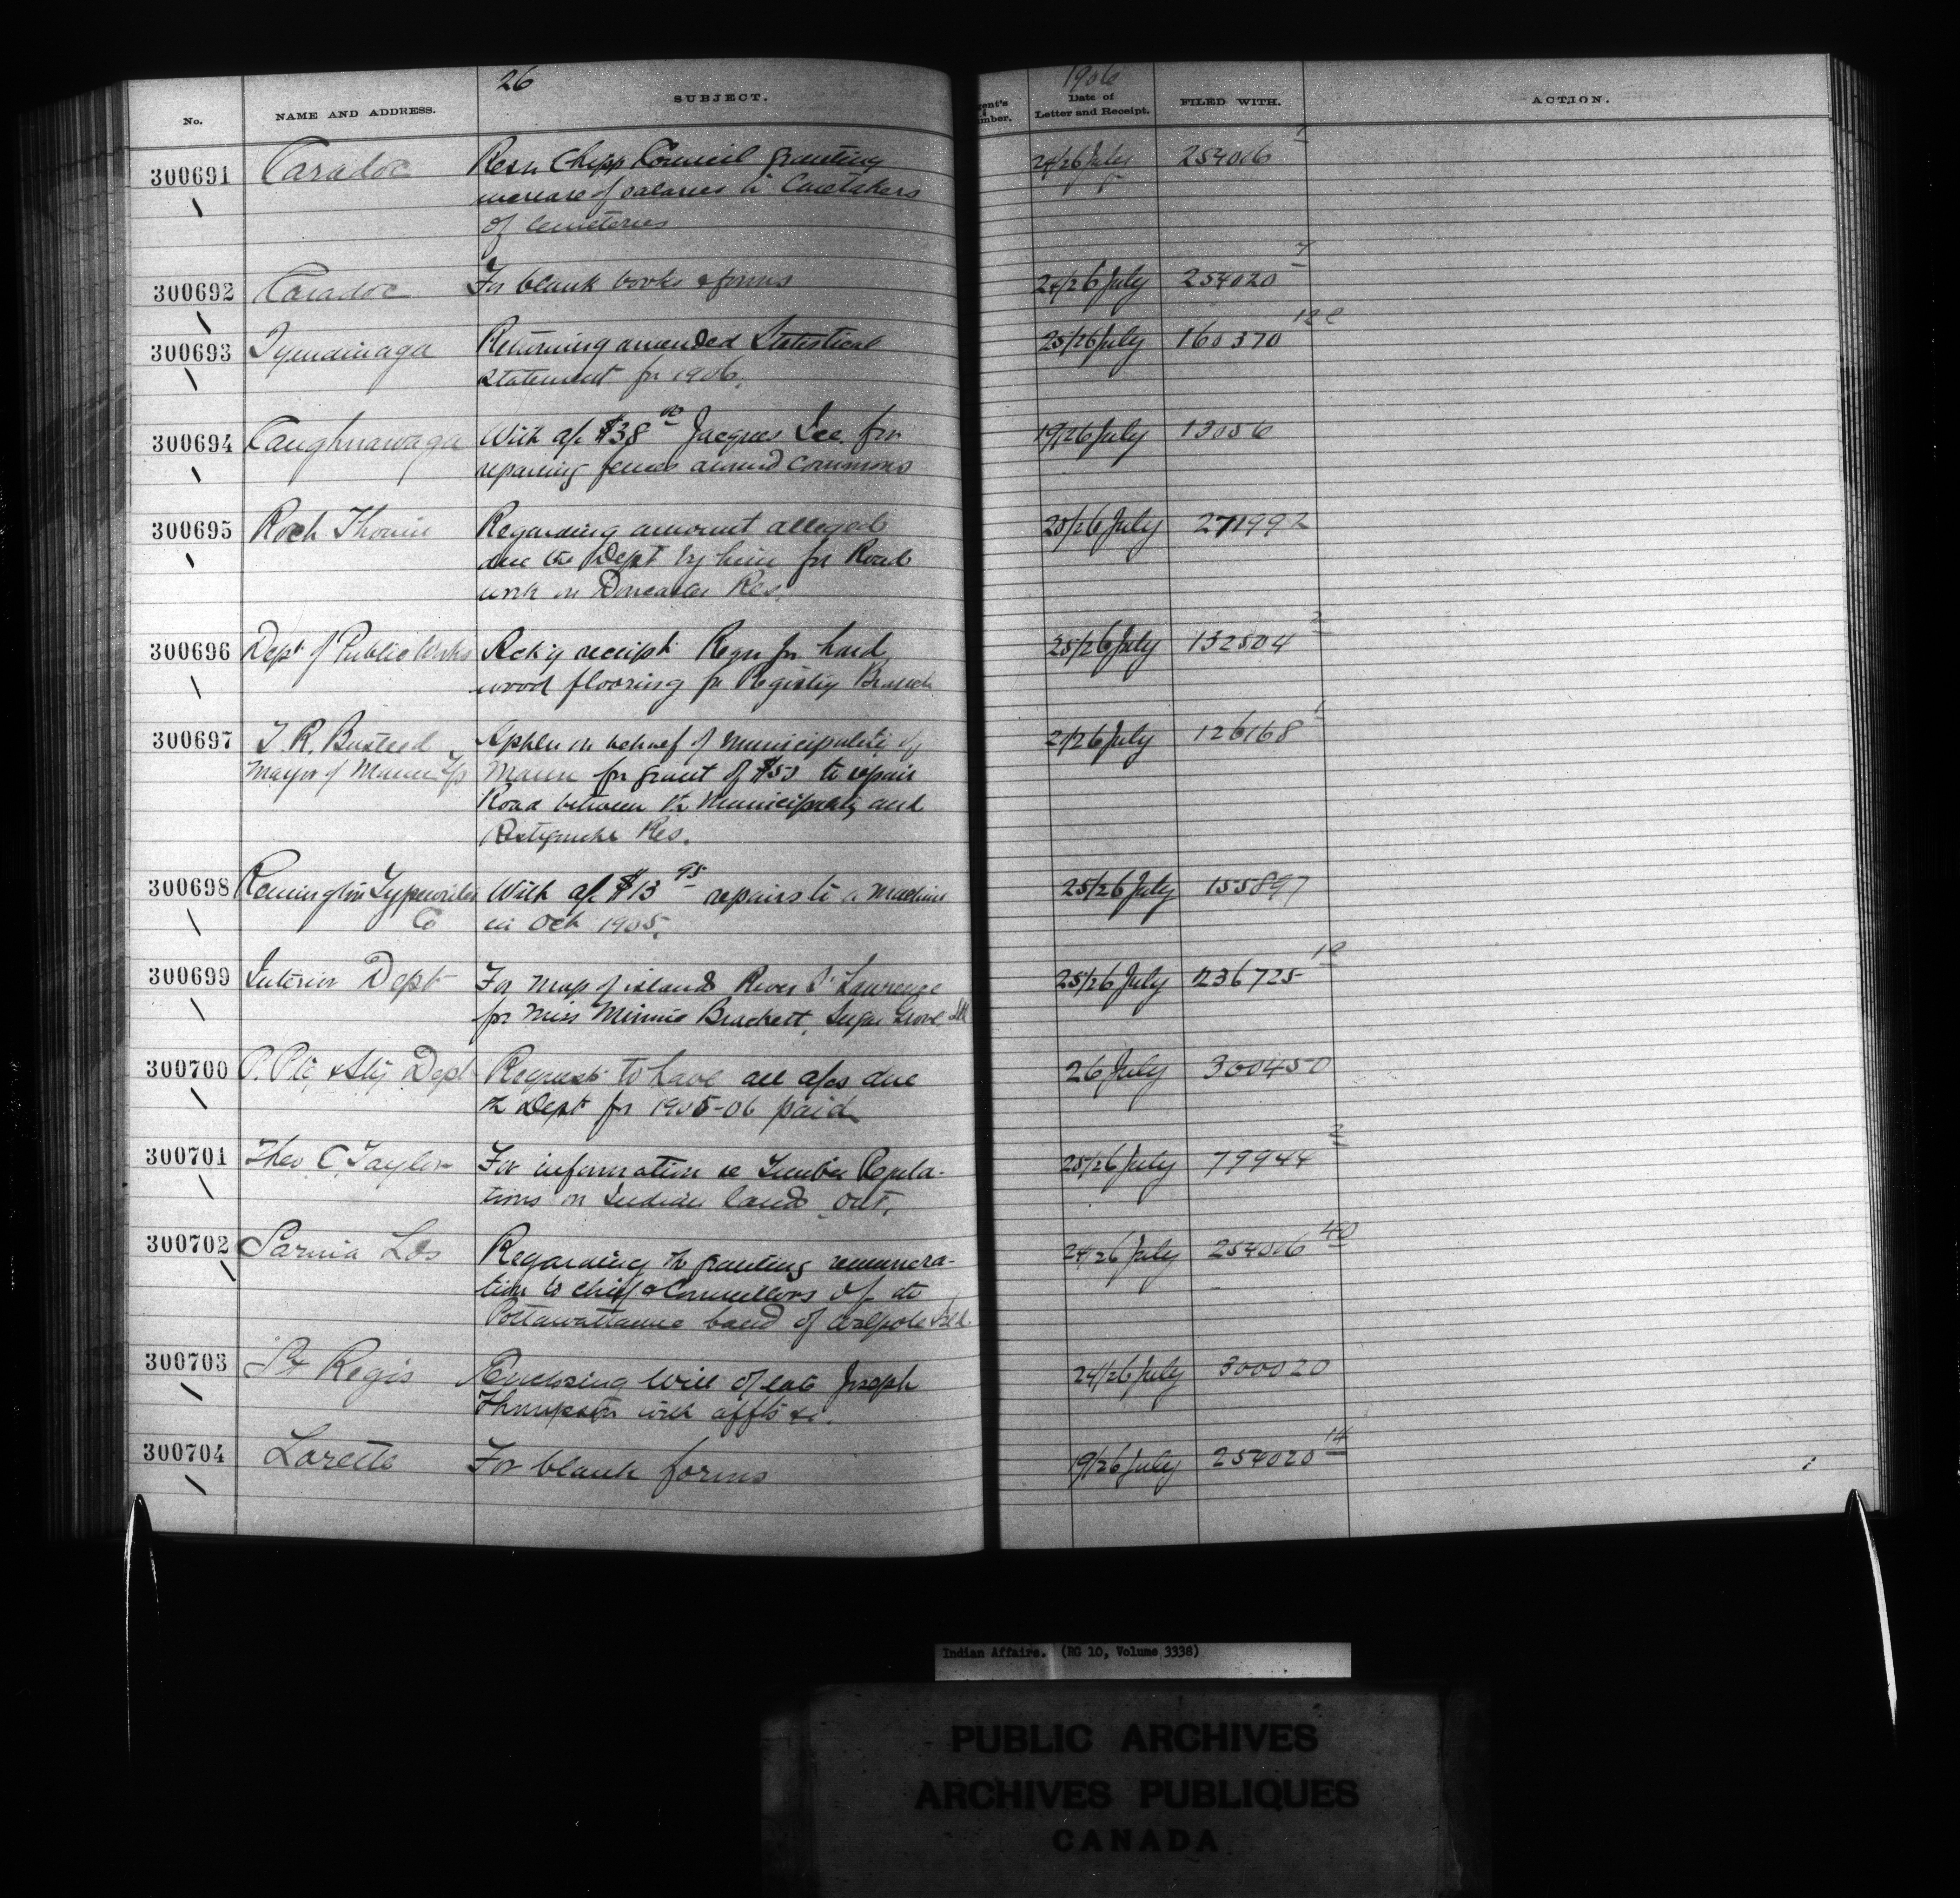 26
1906
No. NAME AND ADDRESS. SUBJECT. Date of Letter and Receipt. FILED WITH. ACTION.
300691 Caradoc Resn Chipp Council granting 24/26 July 254006 1
increase of salaries to Caretakers
of cemeteries
300692 Caradoc For blank books & forms 24/26 July 254020 7
300693 Tyendinaga Returning amended Statistical 25/26 July 160370 12
statement for 1906.
300694 Caughnawaga With a/c $38 00 Jacques Lee for 19/26 July 13056
repairing fences around commons
300695 Roch Thouin Regarding amount alleged 25/26 July 271992
due the Dept by him for Road
work on Doncaster Res.
300696 Dept of Public Works Ack'g receipt Reqn for hard 25/26 July 132504 2
wood flooring for Registry Branch
300697 T. R. Busteed Appln on behalf of Municipality of 21/26 July 126168 1
Mayor of Mann Tp Mann for grant of $50 to repair
Road between the Municipality and
Restigouche Res.
300698 Remington Typewriter With a/c $13 95 repairs to a machine 25/26 July 155897
Co in Oct 1905.
300699 Interior Dept For map of islands River St Lawrence 25/26 July 236725
for Miss Minnie Brackett, Sugar Grove Ill
300700 P. Ptg & Sty Dept Request to have all a/cs due 26 July 300450
the Dept for 1905-06 paid
300701 Theo C. Taylor For information re Timber Regula- 25/26 July 79944 2
tions on Indian lands Ont.
300702 Sarnia Lds Regarding the granting remunera- 24/26 July 254006 40
tion to chief & Councillors of the
Pottawattamie band of Walpole Isld
300703 St Regis Enclosing Will of late Joseph 24/26 July 300020
Thompson with affts &c.
300704 Lorette For blank forms 19/26 July 254020 14
Indian Affairs. (RG 10, Volume 3338)
PUBLIC ARCHIVES
ARCHIVES PUBLIQUES
CANADA